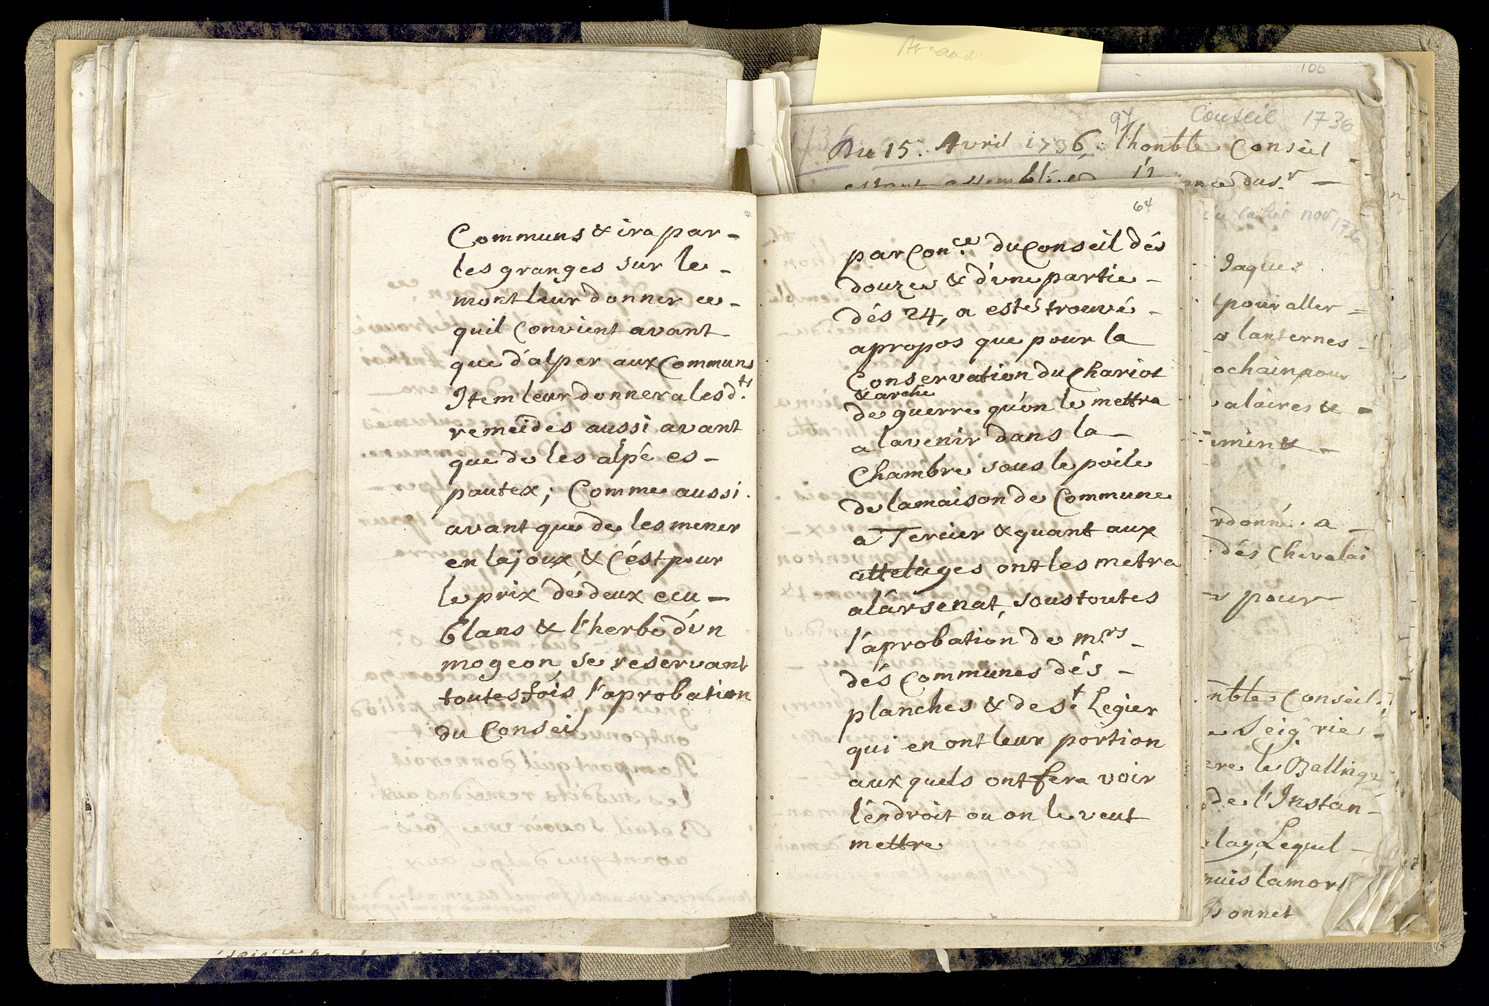 Communs & ira par-
les granges sur le-
mont leur donner ce-
quil convient avant
que d'alper aux Communs
Item leur donnera les d.ts
remeides aussi avant
que de les alpé es-
pautex; Comme aussi.
avant que de les mener
en la joux & C'est pour
le prix dé deux ecu-
blans & l'herbe d'vn
mogeon se reservant
toutesfois l'aprobation
du Conseil
64
par Con.ce du Conseil dés
douze & d'vne partie-
dés 24, a esté trouvé-
apropos que pour la
Conservation du Chariot
& arche
de guerre qu'on le mettra
a lavenir dans la-
Chambre sous le poile
de lamaison de Commune
a Tercier & quant aux
attelages ont les metra
alârsenat, sous toutes
l'aprobation de m.rs-
dés Communes dés-
planches & de s.t Legier
qui en ont leur portion
aux quels ont fera voir
l'éndroit ou on le veut
mettre
106
97
Conseil 1736
Du 15. Avril 1736. l'honble Conseil
Jaques
pour aller
lanternes
ochain pour
alaires &
rdonné. a
dés Chevalai
pour
nble Conseil.
Seig.rie
ere le Balling
de l'Instan-
lay, Lequel
puis lamort
Bonnet